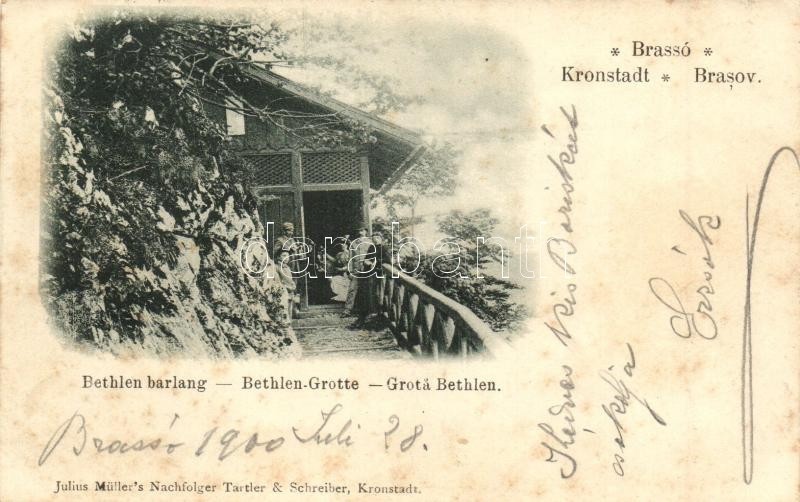 * Brassó *
Kronstadt * Brașov.
darabanth
Bethlen barlang — Bethlen-Grotte — Grotă Bethlen.
Brassó 1900 Juli 28.
Kedves kis Boriskáát
csókolja
Julius Müller's Nachfolger Tartler & Schreiber, Kronstadt.